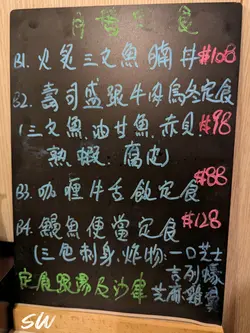 日曹定食
B1. 火炙三文魚腩丼 #108
B2. 壽司盛跟牛肉烏冬定食
(三文魚油甘魚.赤貝 #98
熟蝦. 腐皮)
B3. 咖喱牛舌飯定食 #88
B4. 鰻魚便當定食 #128
(三色刺身.炸物:一口芝士
吉列蠔
定食跟湯及沙律 芝麻雞翼
SW